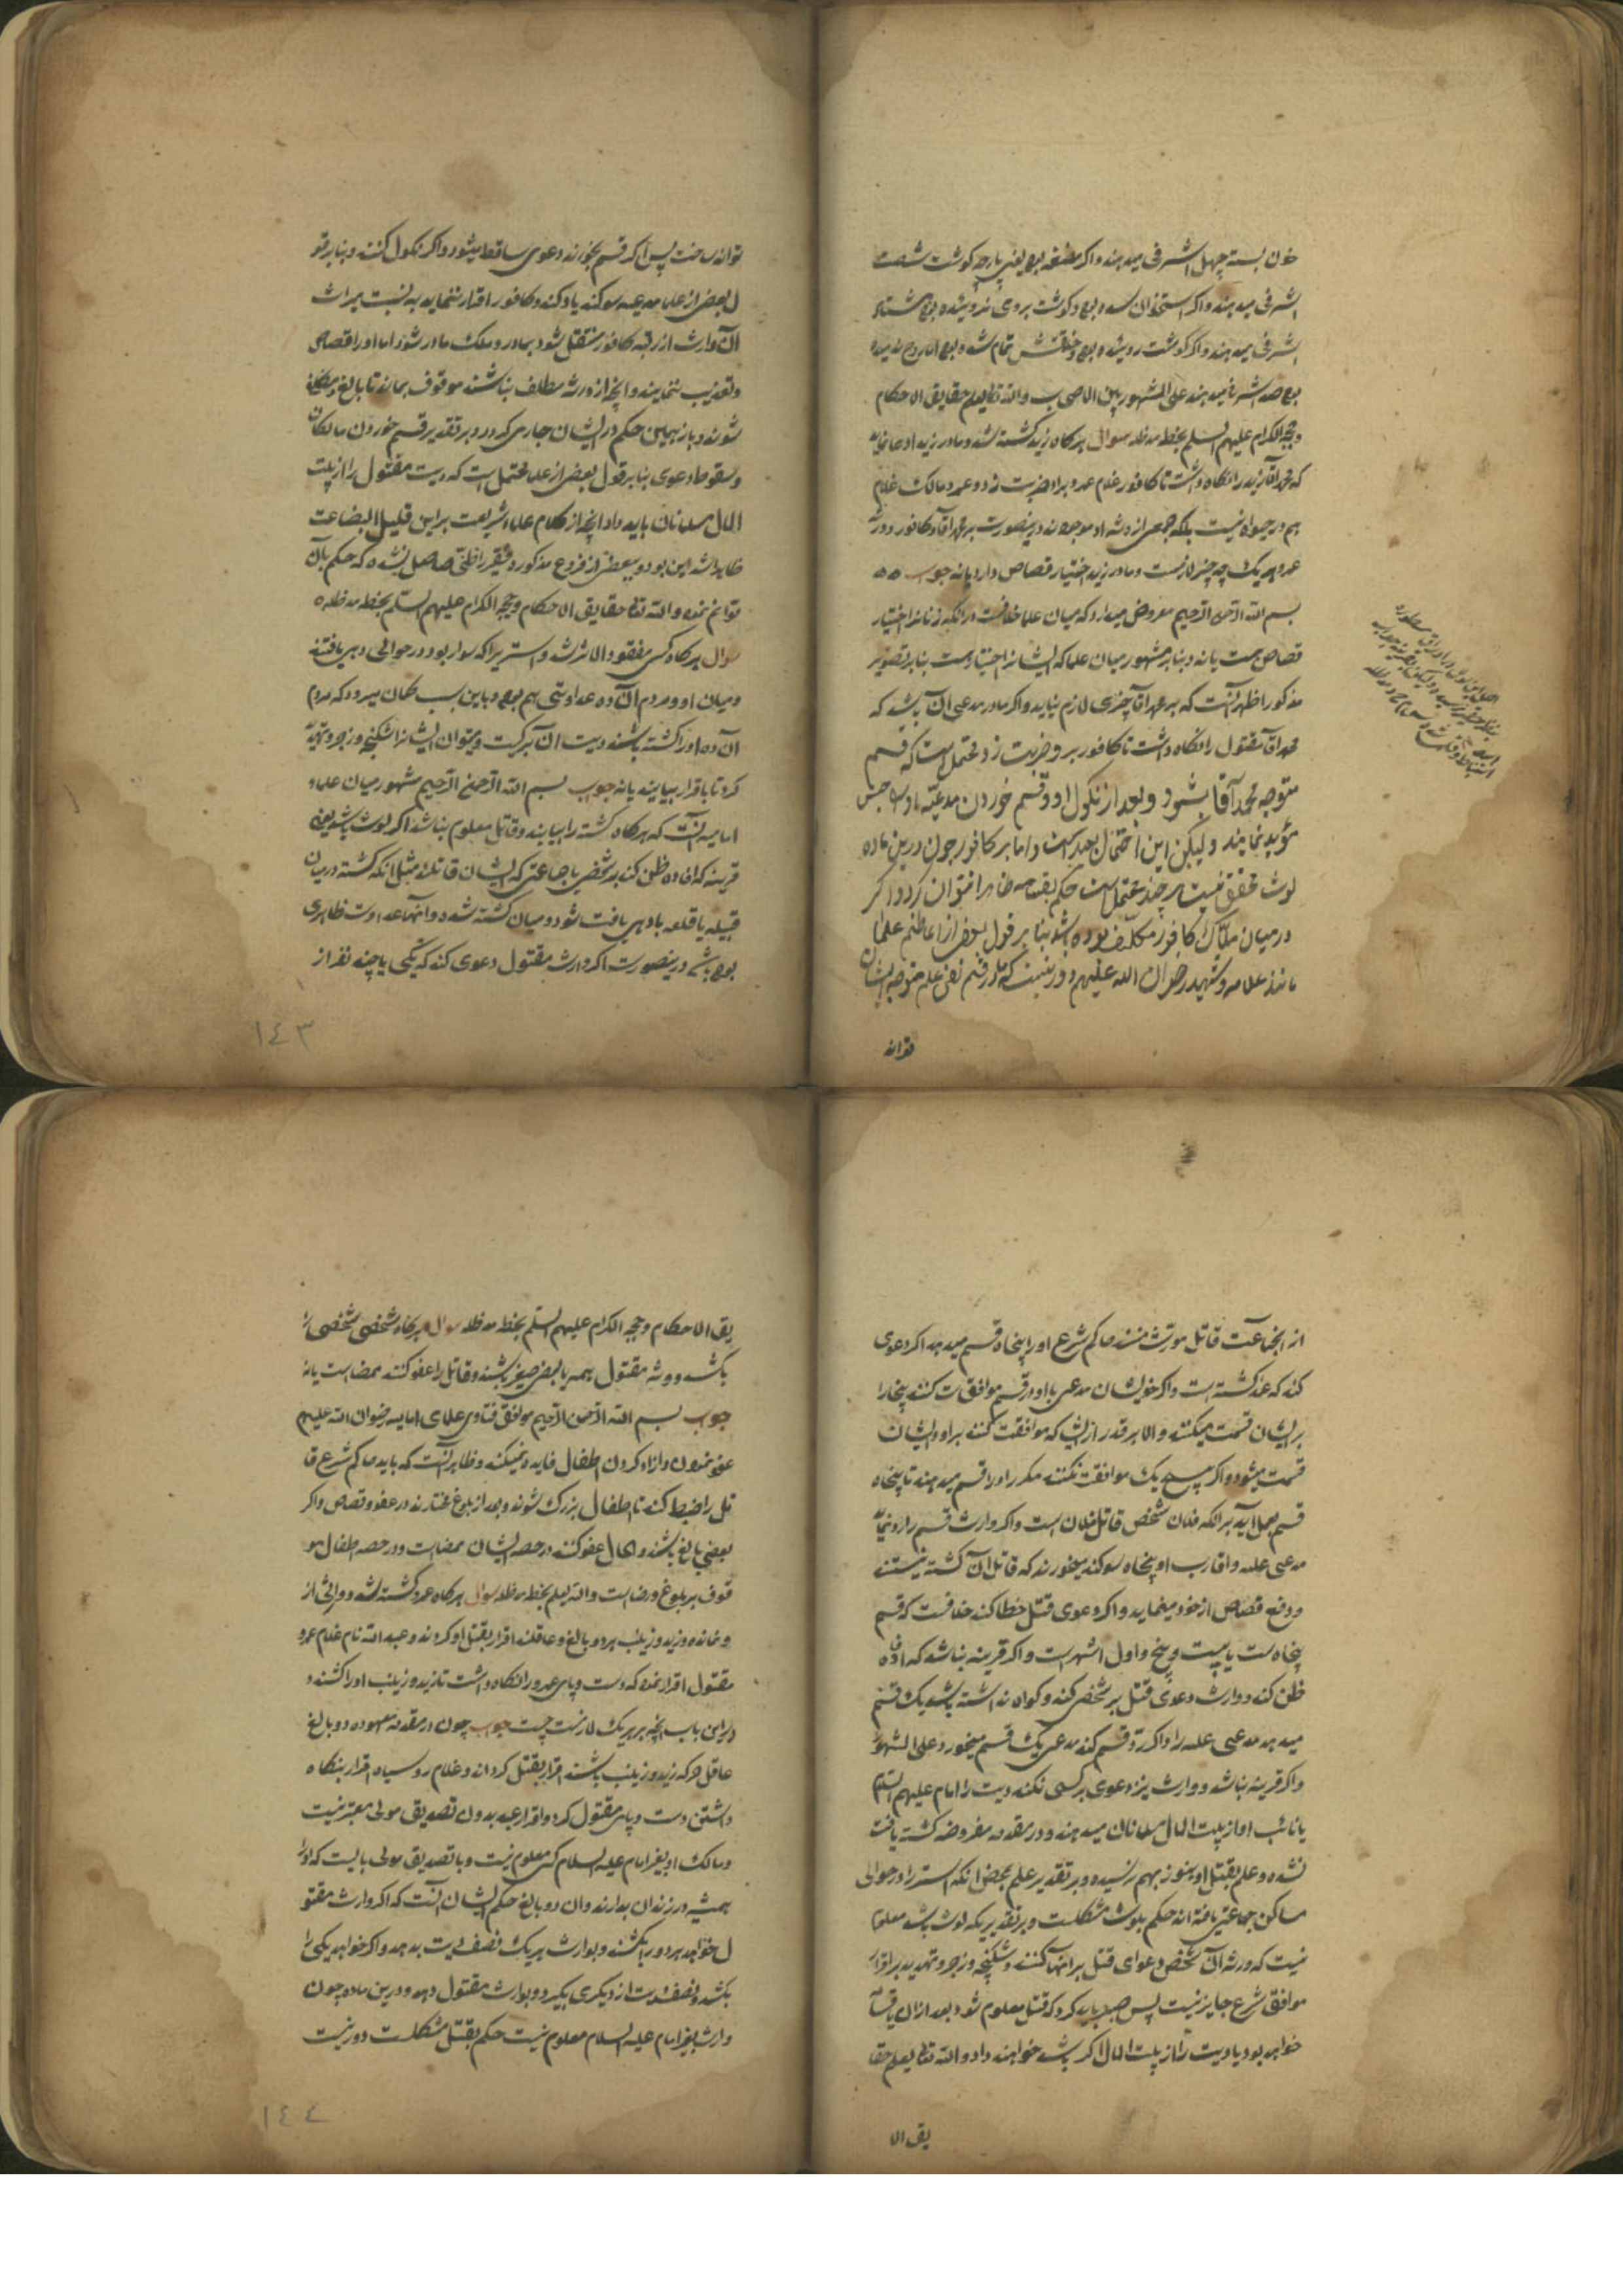 خون بسته چهل اشرفی میدهند و اکر مضغه بود یعنی پارچه کوشت شصت
اشرفی میدهند و اکر استخوان شده بود و کوشت بروی نروئیده بود هشتاد
اشرفی میدهند و اکر کوشت روئیده بود و خلقتش تمام شده بود اما روح ندمیده
بود صد اشرفی میدهند علی المشهور بین الاصحاب والله تعالی یعلم حقایق الاحکام
وحججه الکرام علیهم السلم بخطه مد ظله سوال هرکاه زید کشته شد و مادر زید ادعا نماید
که محمد اقا زید را نکاه داشت تا کافور غلام عمرو برا و ضربت زد و عمرو مالک غلام
هم در حیوة نیست بلکه جمعی از ورثه او موجودند درینصورت بر محمد اقا و کافور و ورثه
عمرو هر یک چه چیز لازمست و مادر زید اختیار قصاص دارد یا نه جواب
بسم الله الرحمن الرحیم معروض میدارد که میان علما خلافست در انکه زنانرا اختیار
قصاص هست یا نه و بنابر مشهور میان علما که ایشانرا اختیار هست بنابر تصویر
مذکور اظهر آنست که بر محمد اقا چیزی لازم نیاید و اکر مادر مدعی آن باشد که
محمد اقا مقتول را نکاه داشت تا کافور بر او ضربت زد محتمل است که قسم
متوجه محمد آقا بشود و بعد از نکول او و قسم خوردن مدعیه او را حبس
مؤبد نمایند ولیکن این احتمال بعید است و اما بر کافور چون درین ماده
لوث محقق نیست هر چند محتمل است حکم بقسامه ظاهرا نمیتوان کرد و اکر
در میان ملاک کافور مکلف بوده باشد بنابر قول بعضی از اعاظم علما
مانند علامه و شهید رضوان الله علیهم دور نیست که قسم نفی علم متوجه ایشان
تواند
تواند ساخت پس اکر قسم بخورند دعوی ساقط میشود و اکر نکول کنند و بنابر قو
ل بعضی از علما مدعیه سوکند یاد کند و کافور اقرار ننماید به نسبت میراث
آن وارث از رقبه کافور منتقل شود بمادر و ملک مادر شود اما او را قصاص
وتعذیب ننمایند و انچه از ورثه مکلف نباشند موقوف بماند تا بالغ و مکلف
شوند و باز همین حکم در ایشان جاری کردد و بر تقدیر قسم خوردن مالکان
وسقوط دعوی بنابر قول بعضی از علما محتمل است که دیت مقتول را از بیت
المال مسلمانان باید داد انچه از کلام علماء شریعت بر این قلیل البضاعت
ظاهر شد این بود و ببعضی از فروع مذکوره فقیر را ظنی حاصل نشده که حکم بآن
توانم نمود والله تعالی حقایق الاحکام وحججه الکرام علیهم السلم بخطه مد ظله
سوال هرکاه کسی مفقود الاثر شد و استر یرا که سوار بود در حوالی دهی یافتند
ومیان او و مردم آن ده عداوتی هم بود و باین سبب کمان میرود که مردم
آن ده او را کشته باشند دیت آن بر کیست و میتوان ایشانرا شکنجه و زجر و تهدید
کرد تا باقرار بیایند یا نه جواب بسم الله الرحمن الرحیم مشهور میان علماء
امامیه آنست که هرکاه کشته را بیابند و قاتل معلوم نباشد اکر لوث باشد یعنی
قرینه که افاده ظن کند بر شخصی یا جماعتی که ایشان قاتلند مثل انکه کشته در میان
قبیله یا قلعه یا دهی یافت شود و میان کشته شده و آنها عداوت ظاهری
بوده باشد درینصورت اکر وارث مقتول دعوی کند که یکی یا چند نفر از
١٤٣
از انجماعت قاتل مورث منند حاکم شرع او را پنجاه قسم میدهد اکر دعوی
کند که عمدا کشته است و اکر خویشان مدعی با او در قسم موافقت کنند پنجاه را
بر ایشان قسمت میکنند والا هر قدر از ایشان که موافقت کنند بر او و ایشان
قسمت میشود و اکر هیچ یک موافقت نکنند مکرر او را قسم میدهند تا پنجاه
قسم بعمل آید بر انکه فلان شخص قاتل فلان است و اکر وارث قسم را رد نماید
مدعی علیه و اقارب او پنجاه سوکند میخورند که قاتل آن کشته نیستند
و دفع قصاص از خود مینماید و اکر دعوی قتل خطا کند خلافست که قسم
پنجاه ست یا بیست و پنج و اول اشهر است و اکر قرینه نباشد که افاده
ظن کند و وارث دعوی قتل بر شخصی کند و کواه نداشته باشد یک قسم
میدهد مدعی علیه را و اکر رد قسم کند مدعی یک قسم میخورد و علی المشهور
و اکر قرینه نباشد و وارث نیز دعوی بر کسی نکند دیت را امام علیهم السلم
یا نائب او از بیت المال مسلمانان میدهند و در مقدمه مفروضه کشته یافت
نشده و علم بقتل او هنوز بهم نرسیده و بر تقدیر علم بمحض انکه استر را در حوالی
مساکن جماعتی یافته اند حکم بلوث مشکلست و بر تقدیریکه لوث باشد معلوم
نیست که ورثه آن شخص دعوای قتل بر آنها کنند و شکنجه و زجر و تهدید بر اقرار
موافق شرع جایز نیست پس صبر باید کرد که قتل معلوم شود بعد ازان یا قسامه
خواهد بود یا دیت را از بیت المال اکر باشد خواهند داد والله تعالی یعلم حقا
یق الا
یق الاحکام وحججه الکرام علیهم السلم بخطه مد ظله سوال هرکاه شخصی شخصی را
بکشد و ورثه مقتول همه یا بعضی صغیر باشند و قاتل را عفو کنند ممضاست یا نه
جواب بسم الله الرحمن الرحیم موافق فتاوی علمای امامیه رضوان الله علیهم
عفو نمودن و ازاد کردن اطفال فایده نمیکند و ظاهر آنست که باید حاکم شرع قا
تل را ضبط کند تا اطفال بزرک شوند و بعد از بلوغ مختارند در عفو و قصاص و اکر
بعضی بالغ باشند و الحال عفو کنند در حصه ایشان ممضاست و در حصه اطفال مو
قوف بر بلوغ و رضاست والله یعلم بخطه مد ظله سوال هرکاه عمرو کشته شد و وارثی از
و نمانده و زید و زینب هر دو بالغ و عاقلند اقرار بقتل او کردند و عبد الله نام غلام عمرو
مقتول اقرار نموده که دست و پای عمرو را نکاه داشت تا زید و زینب او را کشتند و
در این باب انچه بر هر یک لازمست چیست جواب چون در مقدمه معهوده دو بالغ
عاقل که زید و زینب باشند اقرار بقتل کرده اند و غلام رو سیاه اقرار بنکاه
داشتن دست و پای مقتول کرده و اقرار عبد بدون تصدیق مولی معتبر نیست
و مالک او بغیر امام علیه السلام کسی معلوم نیست و با تصدیق مولی بایست که او را
همیشه در زندان بدارند و ان دو بالغ حکم ایشان آنست که اکر وارث مقتو
ل خواهد هر دو را بکشند و بوارث هر یک نصف دیت بدهد و اکر خواهد یکی را
بکشد و نصف دیت از دیکری بکیرد و بوارث مقتول دهد و درین ماده چون
وارث بغیر امام علیه السلام معلوم نیست حکم بقتل مشکلست و دور نیست
١٤٤